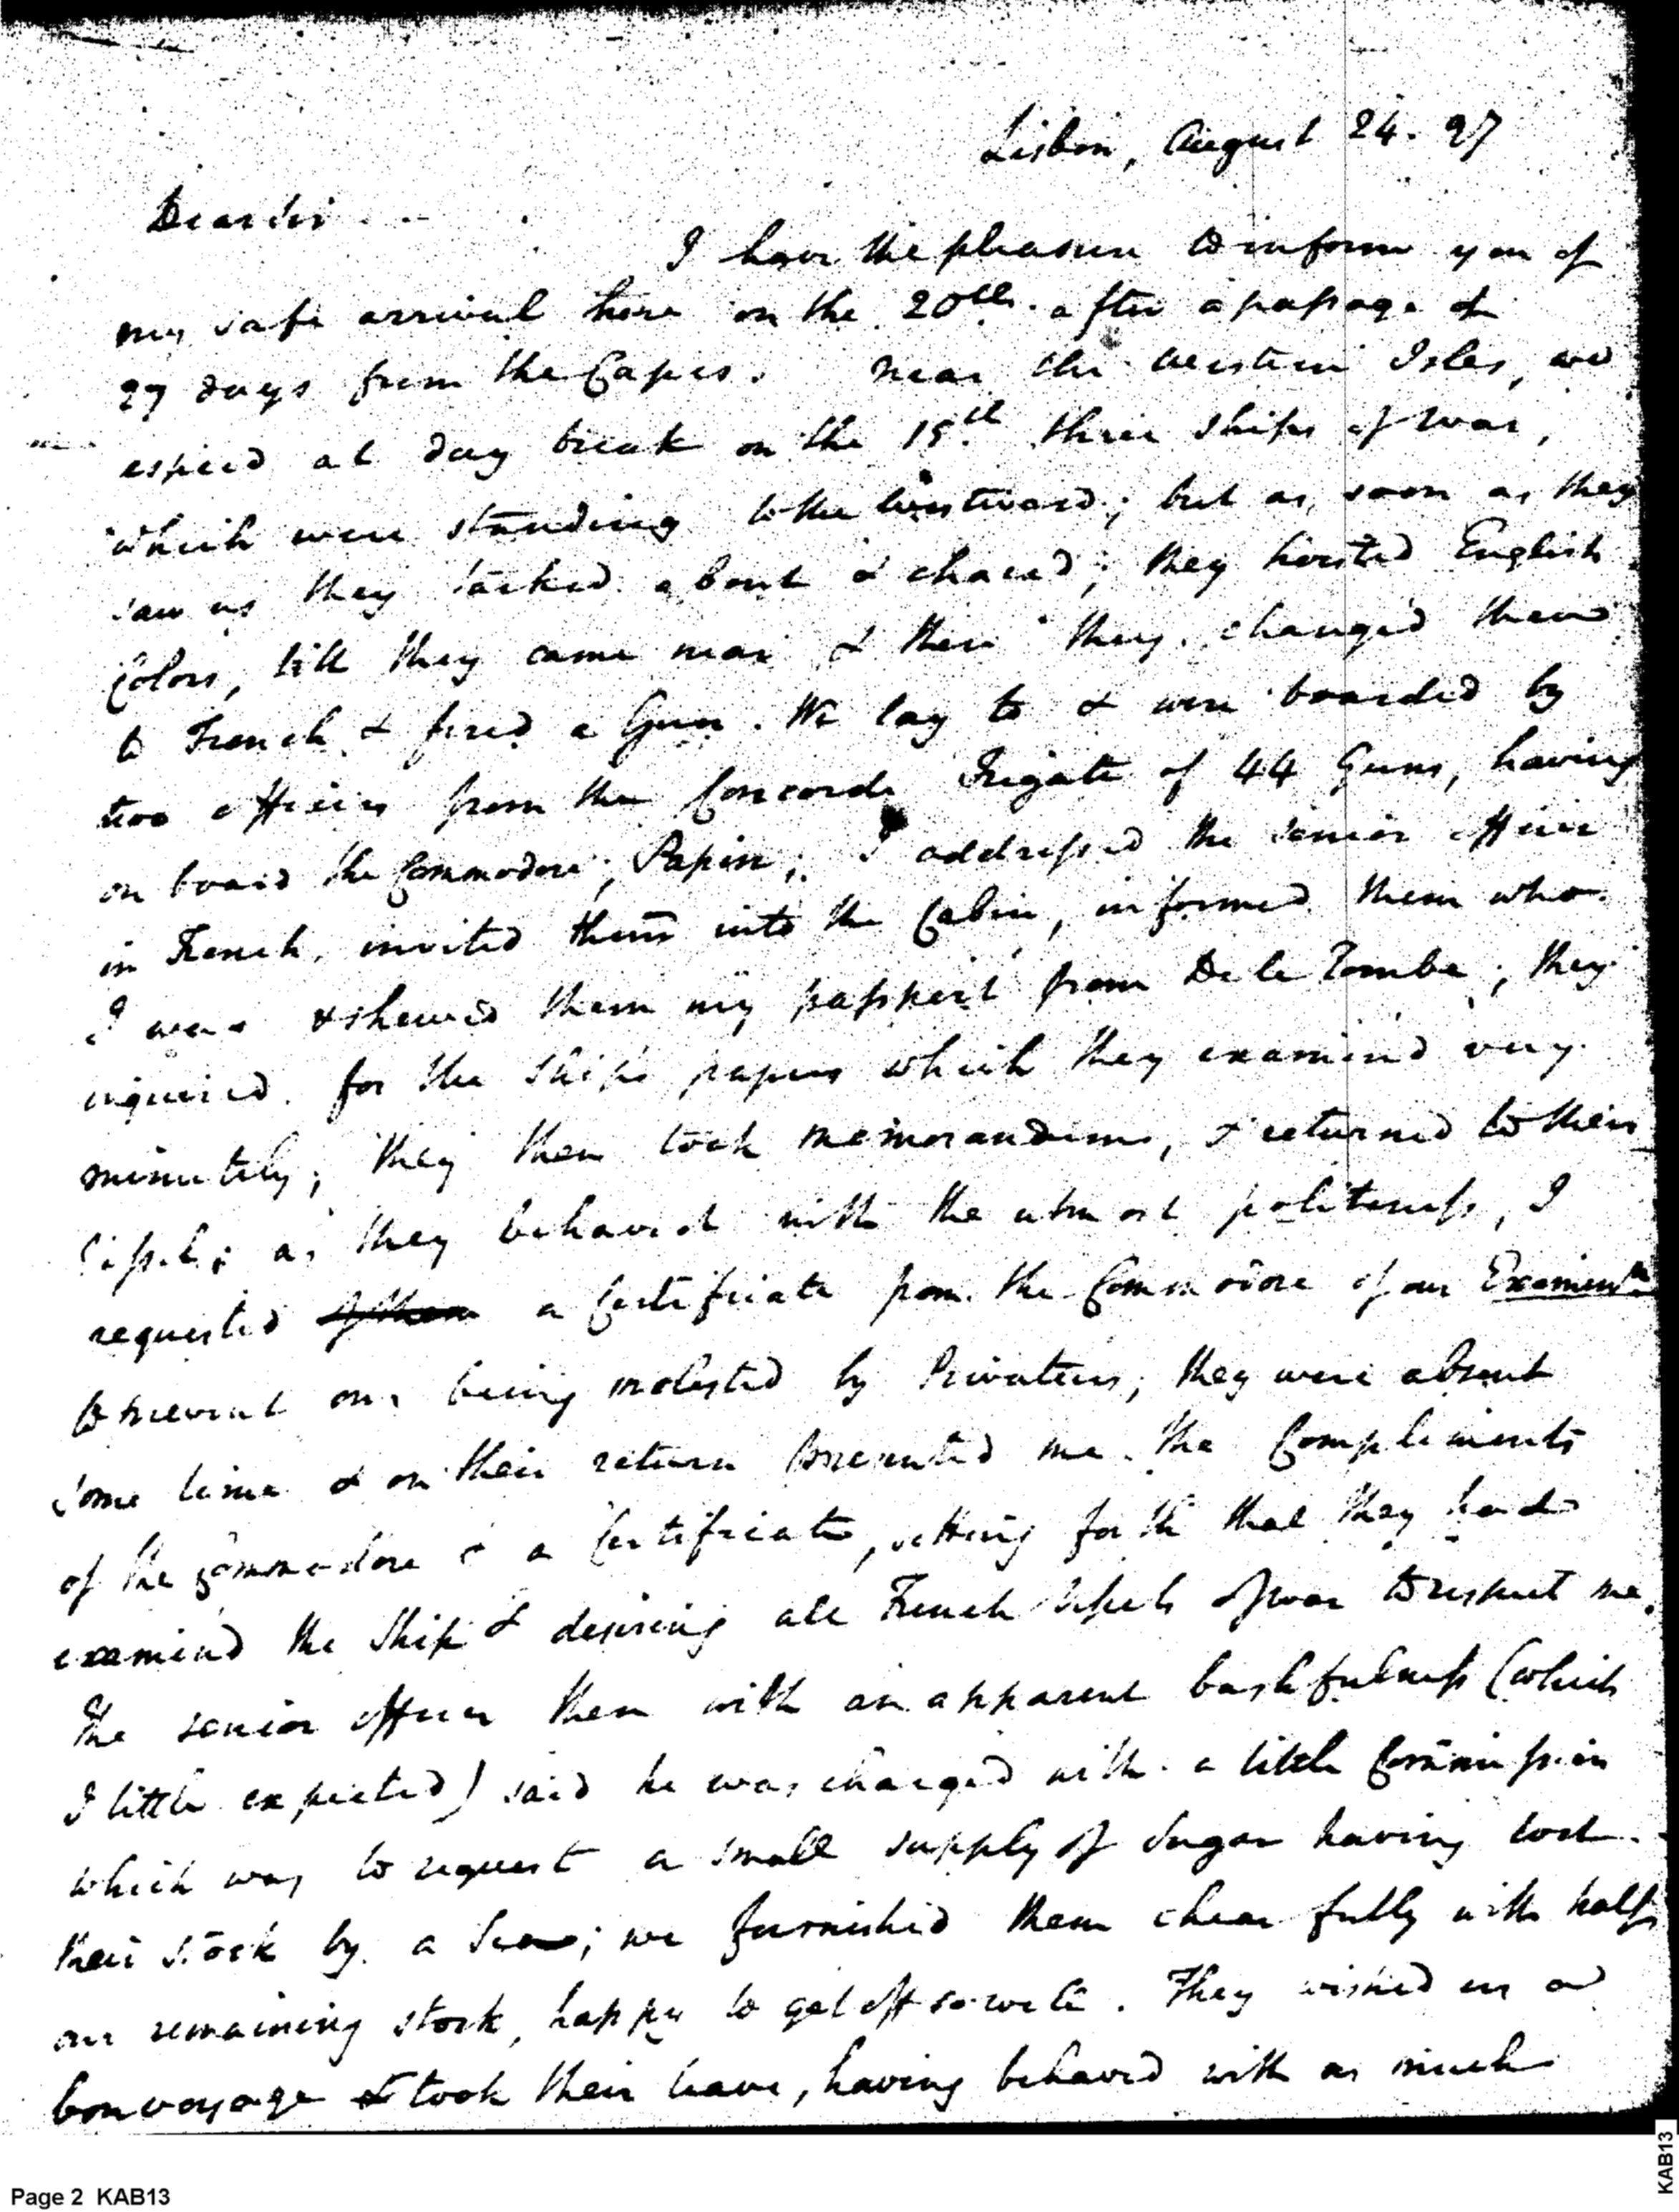 Lisbon, August 24. 97
Dear Sir
I have the pleasure to inform you of
my safe arrival here on the 20th. after a passage of
27 days from the Capes. Near the Western Isles, we
espied at day break on the 15th. three ships of war,
which were standing to the Westward; but as soon as they
saw us they tacked about & chaced; they hoisted English
Colors, till they came near & then they changed them
to French & fired a Gun. We lay to & were boarded by
two officers from the Concorde Frigate of 44 Guns, having
on board the Commodore, Papin; I addressed the senior officer
in French, invited them into the Cabin, informed them who
I was & shewed them my passport from De le Tombe; they
inquired for the Ship's papers which they examined very
minutely; they then took memorandums, & returned to their
Vessel; as they behaved with the utmost politeness, I
requested of them a Certificate from the Commodore of our Examinn.
to prevent our being molested by Privateers; they were absent
some time & on their return presented me the Compliments
of the Commodore & a Certificate, setting forth that they had
examined the Ship & desiring all French Vessels of war to respect me.
The senior officer then with an apparent bashfulness (which
I little expected) said he was charged with a little Commission
which was to request a small supply of Sugar having lost
their stock by a Sea; we furnished them chearfully with half
our remaining stock, happy to get off so well. They wished us a
bon voyage & took their leave, having behaved with as much
Page 2 KAB13
KAB13